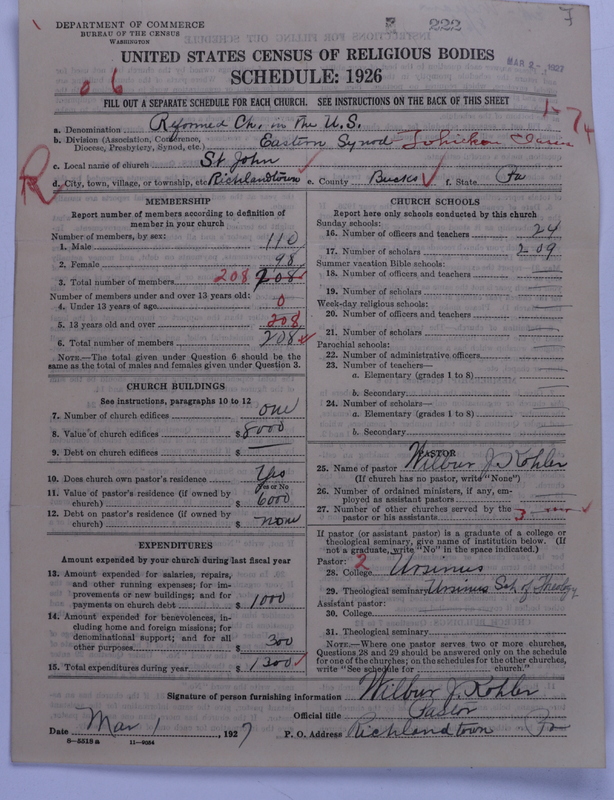 DEPARTMENT OF COMMERCE
BUREAU OF THE CENSUS
WASHINGTON
222
7
MAR 2 - 1927
UNITED STATES CENSUS OF RELIGIOUS BODIES
SCHEDULE: 1926
0 6
FILL OUT A SEPARATE SCHEDULE FOR EACH CHURCH. SEE INSTRUCTIONS ON THE BACK OF THIS SHEET
1-74
a. Denomination Reformed Ch. in The U.S.
b. Division (Association, Conference, Diocese, Presbytery, Synod, etc.) Eastern Synod Tohickon Classis
c. Local name of church St John
d. City, town, village, or township, etc. Richlandtown e. County Bucks f. State Pa
R
MEMBERSHIP
Report number of members according to definition of
member in your church
Number of members, by sex:
1. Male 110
2. Female 98
3. Total number of members 208 208
Number of members under and over 13 years old:
4. Under 13 years of age 0
5. 13 years old and over 208
6. Total number of members 208
NOTE.—The total given under Question 6 should be
same as the total of males and females given under Question 3.
CHURCH BUILDINGS
See instructions, paragraphs 10 to 12
7. Number of church edifices one
8. Value of church edifices $ 8000
9. Debt on church edifices $ —
10. Does church own pastor's residence Yes
Yes or No
11. Value of pastor's residence (if owned by
church) $ 6000
12. Debt on pastor's residence (if owned by
church) $ none
EXPENDITURES
Amount expended by your church during last fiscal year
13. Amount expended for salaries, repairs,
and other running expenses; for im-
provements or new buildings; and for
payments on church debt $ 1000
14. Amount expended for benevolences, in-
cluding home and foreign missions; for
denominational support; and for all
other purposes $ 300
15. Total expenditures during year $ 1300
CHURCH SCHOOLS
Report here only schools conducted by this church
Sunday schools:
16. Number of officers and teachers 24
17. Number of scholars 209
Summer vacation Bible schools:
18. Number of officers and teachers
19. Number of scholars
Week-day religious schools:
20. Number of officers and teachers
21. Number of scholars
Parochial schools:
22. Number of administrative officers
23. Number of teachers—
a. Elementary (grades 1 to 8)
b. Secondary
24. Number of scholars—
a. Elementary (grades 1 to 8)
b. Secondary
PASTOR
25. Name of pastor Wilbur J. Kohler
(If church has no pastor, write "None")
26. Number of ordained ministers, if any, em-
ployed as assistant pastors
27. Number of other churches served by the
pastor or his assistants 3
If pastor (or assistant pastor) is a graduate of a college or
theological seminary, give name of institution below. (If
not a graduate, write "No" in the space indicated.)
Pastor: 2
28. College Ursinus
29. Theological seminary Ursinus Sch. of Theology
Assistant pastor:
30. College
31. Theological seminary
NOTE.—Where one pastor serves two or more churches,
Questions 28 and 29 should be answered only on the schedule
for one of the churches; on the schedules for the other churches,
write "See schedule for church."
Signature of person furnishing information Wilbur J. Kohler
Official title Pastor
Date Mar 1, 1927 P. O. Address Richlandtown Pa
8—5518 a 11—9084